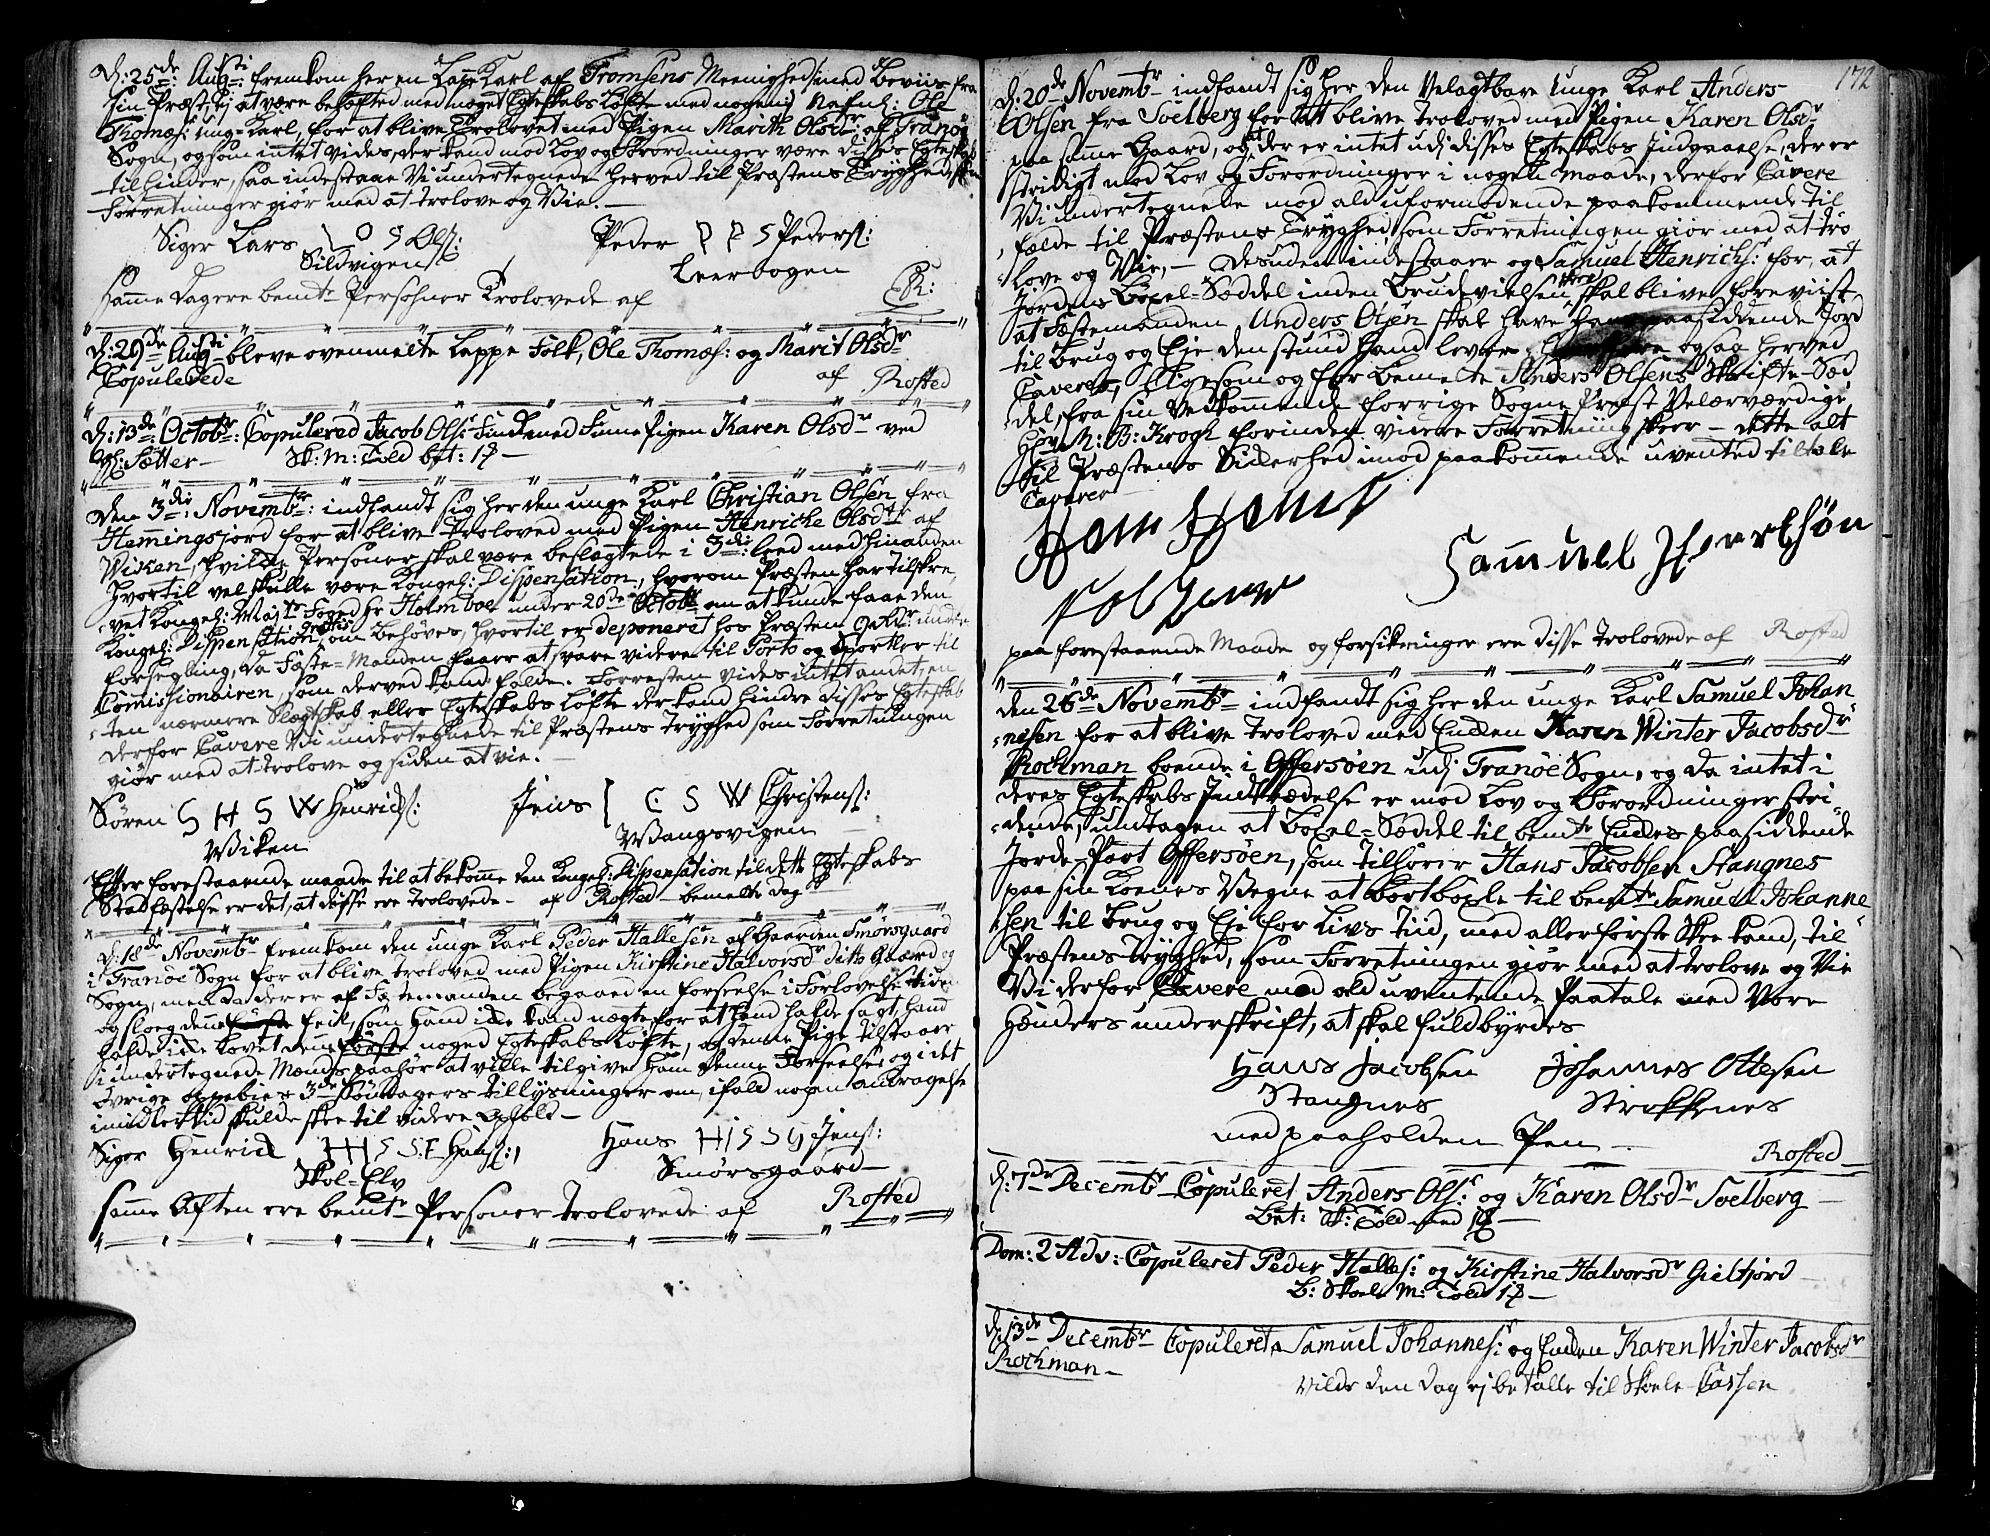 D: 25de Augsti fremkom her en Lappe Karl af Tromsens Meenighed med Beviis fra
sin Præst, ej at være behæfted med noget Egteskabs Løfte med nogen, Nafnl: Ole
Thomæs: ung-Karl, for at blive Trolovet med Pigen Marith Olsdr: af Tranöe
Sogn, og som intet vides, der kand mod Lov og Forordninger være disses Egteskab
til hinder, saa indestaae Vi undertegnede herved til Præstens Tryghed, som
Forretninger giør med at trolove og Vie.—
Siger Lars L O S Ols: Peder P P S Peders:
Sildvigen Leerbogen
samme Dag ere bemte Persohner Trolovede af
D: 29de Augsti bleve ovenmelte Lappe Folk, Ole Thomæs: og Marit Olsdr
Copulerede af Rosted
D: 13de: Octobr: Copulered Jacob Ols: Find med Finne Pigen Karen Olsdr ved
Gl: Sætter— Sk: M: Told bet: 1 ₰ —
Den 3di: Novembr: indfandt sig her den unge Karl Christian Olsen fra
Hemingsjord for at blive troloved med Pigen Henriche Olsdtr af
Wiken, hvilke Personer skal være beslægtede i 3di: leed med hinanden
hvortil vel skulle være Kongel: Dispensation, hvorom Præsten har tilskre„
„vet Kongel: Majts Foged hr Holmboe under 20de Octobr om at kunde faae den
Kongel: Dispensation gratis, om behøves, hvortil er deponeret hos Præsten 9 Rdr: under
forsegling, da Fæste-Manden faaer at svare videre til Porto og Sportler til
Comissionairen, som derved kand falde. Forresten vides intet andet, en
„ten nærmere Slægtskab eller Egteskabs Løfte der kand hindre disses Egteskab
derfor Cavere Vi undertegnede til Præstens Tryghed som Forretningen
giør med at trolove og siden at vie.—
Søren S H S W Henrichs: Jens I C S W Christens:
Wiken Wangsvigen
Efter forestaaende maade til at bekomme den Kongel: Dispensation til dette Egteskabs
Stadfæstelse er det, at disse ere Trolovede— af Rosted— bemelte dag
D: 18de Novembr fremkom den unge Karl Peder Hallesen af Gaarden Smørsgaard
i Tranöe Sogn for at blive troloved med Pigen Kirstine Halvorsdr ditto Gaard og
Sogn, men da der er af Fæstemanden begaaed en forseelse i Forlovelses tiden
og sloeg denne feil, som hand icke kand nægte for at hand hafde sagt, hand
hafde icke Lovet dem noged Egteskabs Løfte, og denne Pige tilstaaer
i undertegnede Mænds paahør at ville tilgive ham denne Forseelse, og i det
övrige oppebier 3de Søndagers tillysninger om, ifald nogen andragelse
imidlertid skulde skee til videre Ophold—
Siger Henrich H H S S.E Hans:, Hans H I S S G Jens:
Skol-Elv Smørsgaard—
samme Aften ere bemte Personer trolovede af Rosted
172
D: 20de Novembr indfandt sig her den Velagtbare unge Karl Anders
Olsen fra Solberg for at blive troloved med Pigen Karen Olsdr
paa samme Gaard, og at der er intet udj disses Egteskabs Indgaaelse, der er
stridigt mod Lov og Forordninger i nogen maade, derfor Cavere
Vi undertegnede mod ald uformodende paakommende til
„falde til Præstens Tryghed som Forretningen giør med at tro
„love og Vie,— desuden indestaaer og Samuel Henrichs: for, at
Jordens Böxel-Seddel inden Brudevielsen skeer skal blive foreviist
at Fæstemanden Anders Olsen skal have paasiddende Jord
til Brug og Eje den stund hand lever, ogsaa herved
Caverer, Ligesom og for bemelte Anders Olsens Skrifte-Sed
del, fra sin Vedkommende forrige Sogne Præst Velærværdige
Hr M: B: Krogh forinden videre Forretning skeer— dette alt
til Præstens Sickerhed imod paakommende uvented tiltale
Caverer—
Samuel Henrichsøn
Solberg
paa forestaaende Maade og forsikringer ere disse trolovede af Rosted
Den 26de Novembr indfandt sig her den unge Karl Samuel Johan
„nesen for at blive troloved med Encken Karen Winter Jacobsdr
Rockman boende i Offersøen udj Tranöe Sogn, og da intet i
deres Egteskabs Indtrædelse er mod Lov og Forordninger stri„
„dende, undtagen at Böxel-Seddel til bemte Enckes paasiddende
Jorde-Part Offersøen, som tilhører Hans Jacobsen Stangnes
paa sin Koenes Vegne at bortböxle til bemte Samuel Johanne
„sen til brug og Eje for Livs tiid, med allerførste Skee kand, til„
Præstens Tryghed, som Forretningen giør med at trolove og Vie
Vi derfor Cavere mod ald uventende Paatale med Vore
hænders underskrift, at skal fuldbyrdes
Hans Jacobsen Johannes Ottesen
Stangnes Strokkenes
med paaholden Pen—
Rosted
D: 7de Decembr Copuleret Anders Ols: og Karen Olsdr Solberg—
Bet: Sk: Told med 1₰—
Dom: 2 Adv: Copuleret Peder Halles: og Kirstine Halvorsdr Gielfjord—
B: Skoele M: Told 1₰—
D: 13de Decembr Copuleret Samuel Johannes: og Encken Karen Winter Jacobsdr
Rockman—
vilde den dag ej betalle til Skoele-Cassen